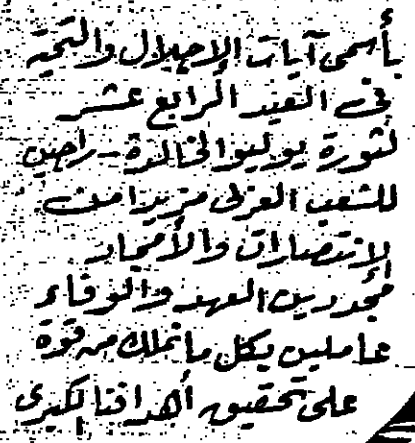 بأسمى آيات الإجلال والتحية
فى العيد الرابع عشر
لثورة يوليو الخالدة - راجين
للشعب العربى مزيدا من
الانتصارات والأمجاد
مجددين العهد والوفاء
عاملين بكل ما نملك من قوة
على تحقيق أهدافنا الكبرى